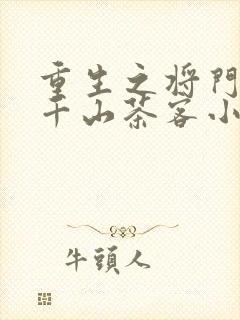 重生之将門
千山茶客小
牛頭人